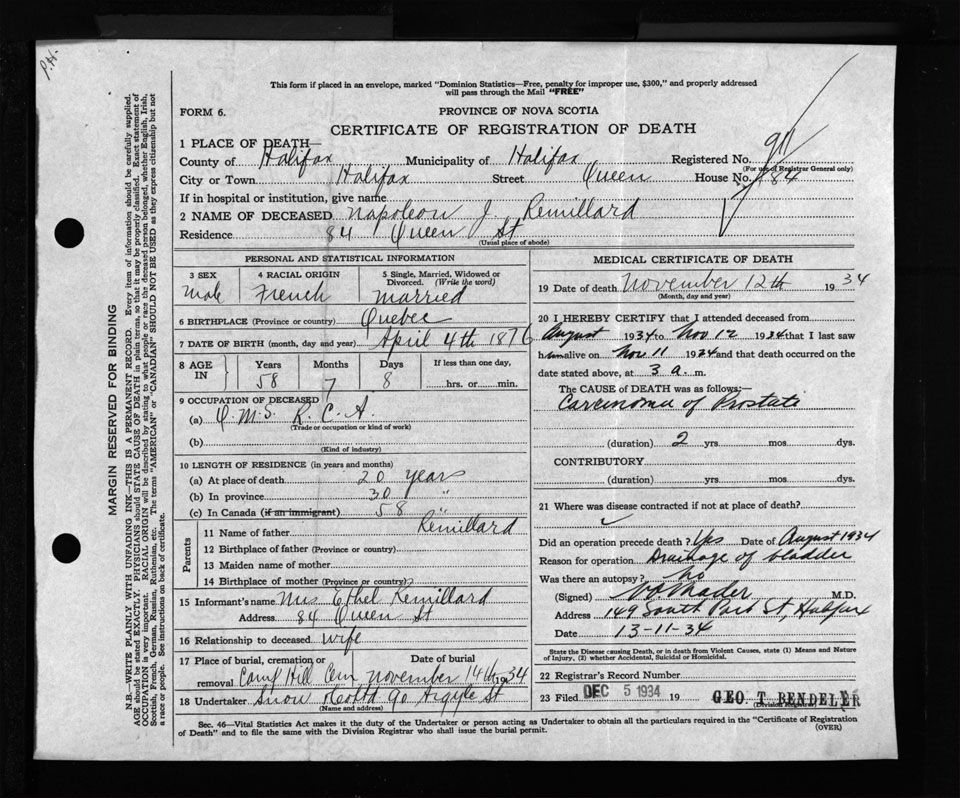 P.H.
This form if placed in an envelope, marked "Dominion Statistics—Free, penalty for improper use, $300," and properly addressed
will pass through the Mail "FREE"
FORM 6.
PROVINCE OF NOVA SCOTIA
CERTIFICATE OF REGISTRATION OF DEATH
1 PLACE OF DEATH—
County of Halifax Municipality of Halifax Registered No. 911
(For use of Registrar General only)
City or Town Halifax Street Queen House No. 84
If in hospital or institution, give name
2 NAME OF DECEASED Napoleon J. Remillard
Residence 84 Queen St
(Usual place of abode)
PERSONAL AND STATISTICAL INFORMATION
3 SEX 4 RACIAL ORIGIN 5 Single, Married, Widowed or Divorced. (Write the word)
Male French Married
6 BIRTHPLACE (Province or country) Quebec
7 DATE OF BIRTH (month, day and year) April 4th 1876
8 AGE IN Years Months Days If less than one day,
58 7 8 hrs. or min.
9 OCCUPATION OF DECEASED
(a) Q.M.S. R.C.A.
(Trade or occupation or kind of work)
(b)
(Kind of industry)
10 LENGTH OF RESIDENCE (in years and months)
(a) At place of death 20 years
(b) In province 30 "
(c) In Canada (if an immigrant) 58 "
Parents
11 Name of father Remillard
12 Birthplace of father (Province or country)
13 Maiden name of mother
14 Birthplace of mother (Province or country)
15 Informant's name Mrs Ethel Remillard
Address 84 Queen St
16 Relationship to deceased wife
17 Place of burial, cremation or removal Camp Hill Cem Date of burial November 14th 1934
18 Undertaker Snow 90 Argyle St
(Name and address)
MEDICAL CERTIFICATE OF DEATH
19 Date of death November 12th 1934
(Month, day and year)
20 I HEREBY CERTIFY that I attended deceased from
August 1934 to Nov 12 1934 that I last saw
him alive on Nov 11 1934 and that death occurred on the
date stated above, at 3 a. m.
The CAUSE OF DEATH was as follows:—
Carcinoma of Prostate
(duration) 2 yrs. mos. dys.
CONTRIBUTORY
(duration) yrs. mos. dys.
21 Where was disease contracted if not at place of death?
Did an operation precede death? Yes Date of August 1934
Reason for operation Drainage of bladder
Was there an autopsy? No
(Signed) Mader M.D.
Address 149 South Park St, Halifax
Date 13-11-34
State the Disease causing Death, or in death from Violent Causes, state (1) Means and Nature of Injury, (2) whether Accidental, Suicidal or Homicidal.
22 Registrar's Record Number
23 Filed DEC 5 1934 19 GEO. T. RENDELER
(Division Registrar)
Sec. 46—Vital Statistics Act makes it the duty of the Undertaker or person acting as Undertaker to obtain all the particulars required in the "Certificate of Registration
of Death" and to file the same with the Division Registrar who shall issue the burial permit.
(OVER)
MARGIN RESERVED FOR BINDING
N.B.—WRITE PLAINLY WITH UNFADING INK—THIS IS A PERMANENT RECORD. Every item of information should be carefully supplied.
AGE should be stated EXACTLY. PHYSICIANS should STATE CAUSE OF DEATH in plain terms, so that it may be properly classified. Exact statement of
OCCUPATION is very important. RACIAL ORIGIN will be described by stating to what people or race the deceased person belonged, whether English, Irish,
Scottish, French, German, Russian, Ruthenian, etc. The terms "AMERICAN" or "CANADIAN" SHOULD NOT BE USED as they express citizenship but not
a race or people. See instructions on back of certificate.